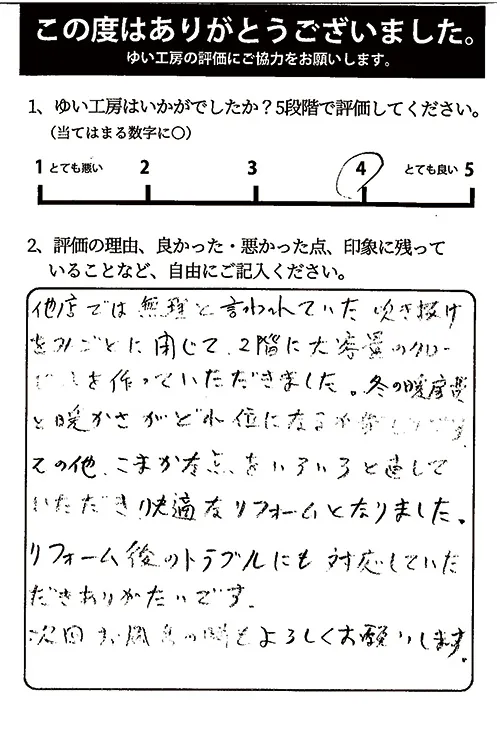 この度はありがとうございました。
ゆい工房の評価にご協力をお願いします。
1、ゆい工房はいかがでしたか？5段階で評価してください。
（当てはまる数字に○）
1 とても悪い 2 3 4 とても良い 5
2、評価の理由、良かった・悪かった点、印象に残って
いることなど、自由にご記入ください。
他店では無理と言われていた吹き抜け
をみごとに閉じて、2階に大容量のクロー
を作っていただきました。冬の暖房費
と暖かさがどれ位になるか楽しみです。
その他、こまかな点をいろいろと直して
いただき快適なリフォームとなりました。
リフォーム後のトラブルにも対応していた
だきありがたいです。
次回お風呂の時もよろしくお願いします。